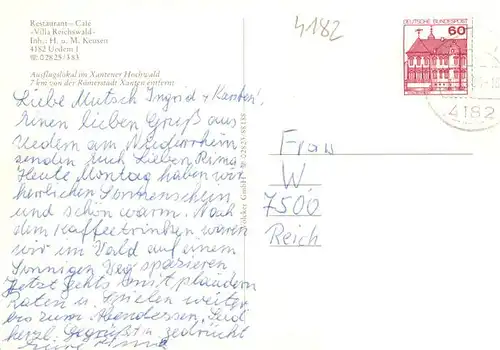 Restaurant – Café
»Villa Reichswald«
Inh.: H. u. M. Keusen
4182 Uedem 1
☎ 02825/383
Ausflugslokal im Xantener Hochwald
7 km von der Römerstadt Xanten entfernt
4182
DEUTSCHE BUNDESPOST
60
4182
Liebe Mutsch, Ingrid + Karsten!
Einen lieben Gruß aus
Uedem am Niederrhein
senden Euch Lieben,
Heute Montag haben wir
herrlichen Sonnenschein
und schön warm. Nach
dem Kaffeetrinken waren
wir im Wald auf einem
Sonnigen Weg spazieren
Jetzt gehts mit plaudern
Raten u. Spielen weiter
bis zum Abendessen. Seid
herzl. gegrüßt u. gedrückt
Eure
Frau
W
7500
Reich